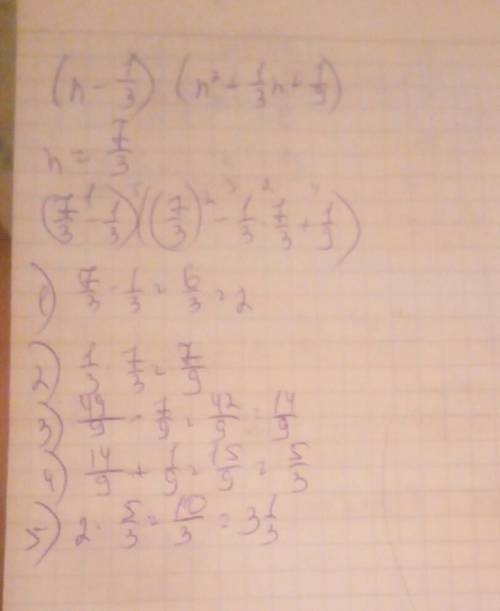 (n - 1/3) (n² + 1/3 n + 1/9)
n = 7/3
(7/3 - 1/3)((7/3)² - 1/3 · 7/3 + 1/9)
1) 7/3 - 1/3 = 6/3 = 2
2) 1/3 · 7/3 = 7/9
3) 49/9 - 7/9 = 42/9 = 14/9
4) 14/9 + 1/9 = 15/9 = 5/3
5) 2 · 5/3 = 10/3 = 3 1/3